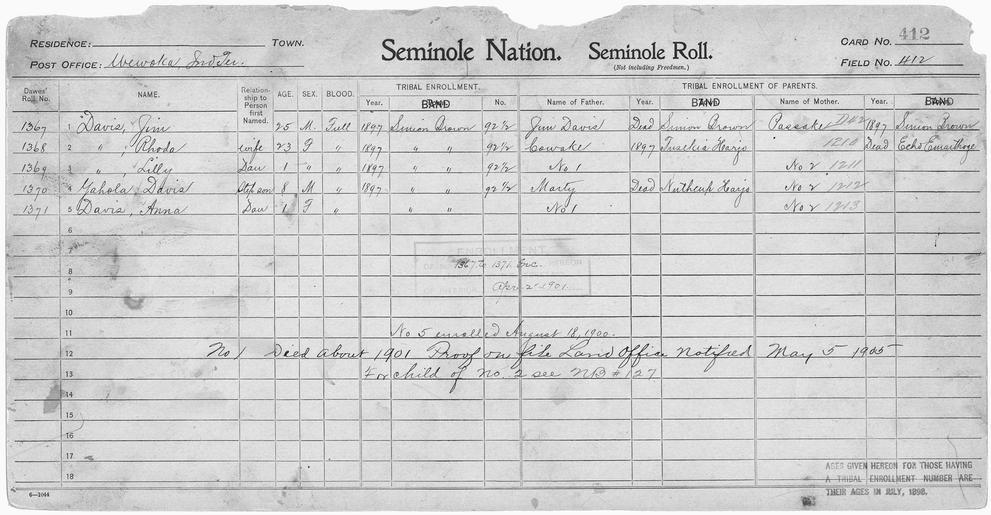 RESIDENCE: TOWN. Seminole Nation. Seminole Roll. CARD NO. 412
POST OFFICE: Wewoka Ind Ter. (Not including Freedmen.) FIELD NO. 412
Dawes' Roll No. NAME. Relationship to Person first Named. AGE. SEX. BLOOD. TRIBAL ENROLLMENT. TRIBAL ENROLLMENT OF PARENTS.
Year. BAND No. Name of Father. Year. BAND Name of Mother. Year. BAND
1367 1 Davis, Jim 25 M. Full 1897 Simon Brown 92 1/2 Jim Davis Dead Simon Brown Passake 1897 Simon Brown
1368 2 " , Rhoda wife 23 F " 1897 " " 92 1/2 Cowake 1897 Tusekia Harjo 1210 Dead Echo Emathoge
1369 3 " , Lilly Dau 1 " " 1897 " " 92 1/2 No 1 No 2 1211
1370 4 Yahola Davis Stepson 8 M " 1897 " " 92 1/2 Marty Dead Harjo No 2 1212
1371 5 Davis, Anna Dau 1 F " " " No 1 No 2 1213
6
7 ENROLLMENT
8 1367 to 1371 Inc.
9 Apr 2 1901
10
11 No 5 enrolled August 18, 1900.
12 No 1 Died about 1901 Proof on file Land Office notified May 5 1905
13 For child of No. 2 see NB # 127
14
15
16
17
18
AGES GIVEN HEREON FOR THOSE HAVING
A TRIBAL ENROLLMENT NUMBER ARE
THEIR AGES IN JULY, 1898.
6-1044